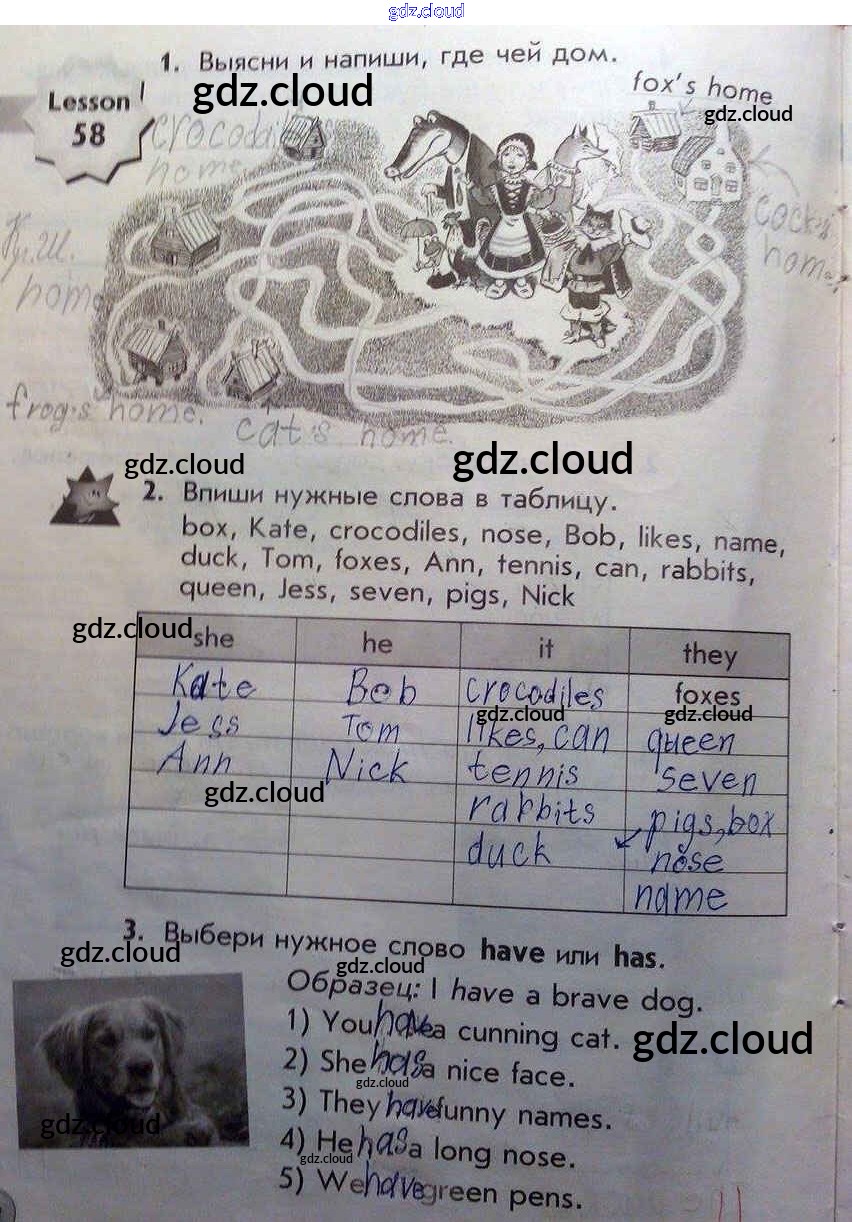 gdz.cloud
1. Выясни и напиши, где чей дом.
Lesson
58
gdz.cloud
fox's home
gdz.cloud
crocodiles
home
cock's
home
home
frog's home.
cat's home.
gdz.cloud
gdz.cloud
2. Впиши нужные слова в таблицу.
box, Kate, crocodiles, nose, Bob, likes, name,
duck, Tom, foxes, Ann, tennis, can, rabbits,
queen, Jess, seven, pigs, Nick
gdz.cloud
she he it they
Kate Bob crocodiles foxes
gdz.cloud gdz.cloud
Jess Tom likes, can queen
Ann Nick tennis seven
gdz.cloud
rabbits pigs, box
duck nose
name
3. Выбери нужное слово have или has.
gdz.cloud
gdz.cloud
Образец: I have a brave dog.
1) You have a cunning cat.
gdz.cloud
2) She has a nice face.
gdz.cloud
3) They have funny names.
gdz.cloud
4) He has a long nose.
gdz.cloud
5) We have green pens.